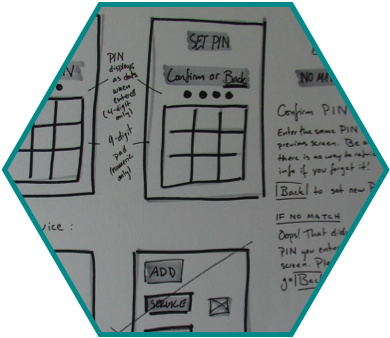 PIN
displays
as dots
when
entered
(4-digit
only)
9-digit
pad
(numeric
only)
SET PIN
Confirm or Back
NO MA
Confirm PIN
Enter the same PIN
previous screen. Be a
there is no way to
info if you forget it!
Back to set new P
IF NO MATCH
Oops! That did
PIN you
screen.
go Bac
vice :
ADD
SERVICE